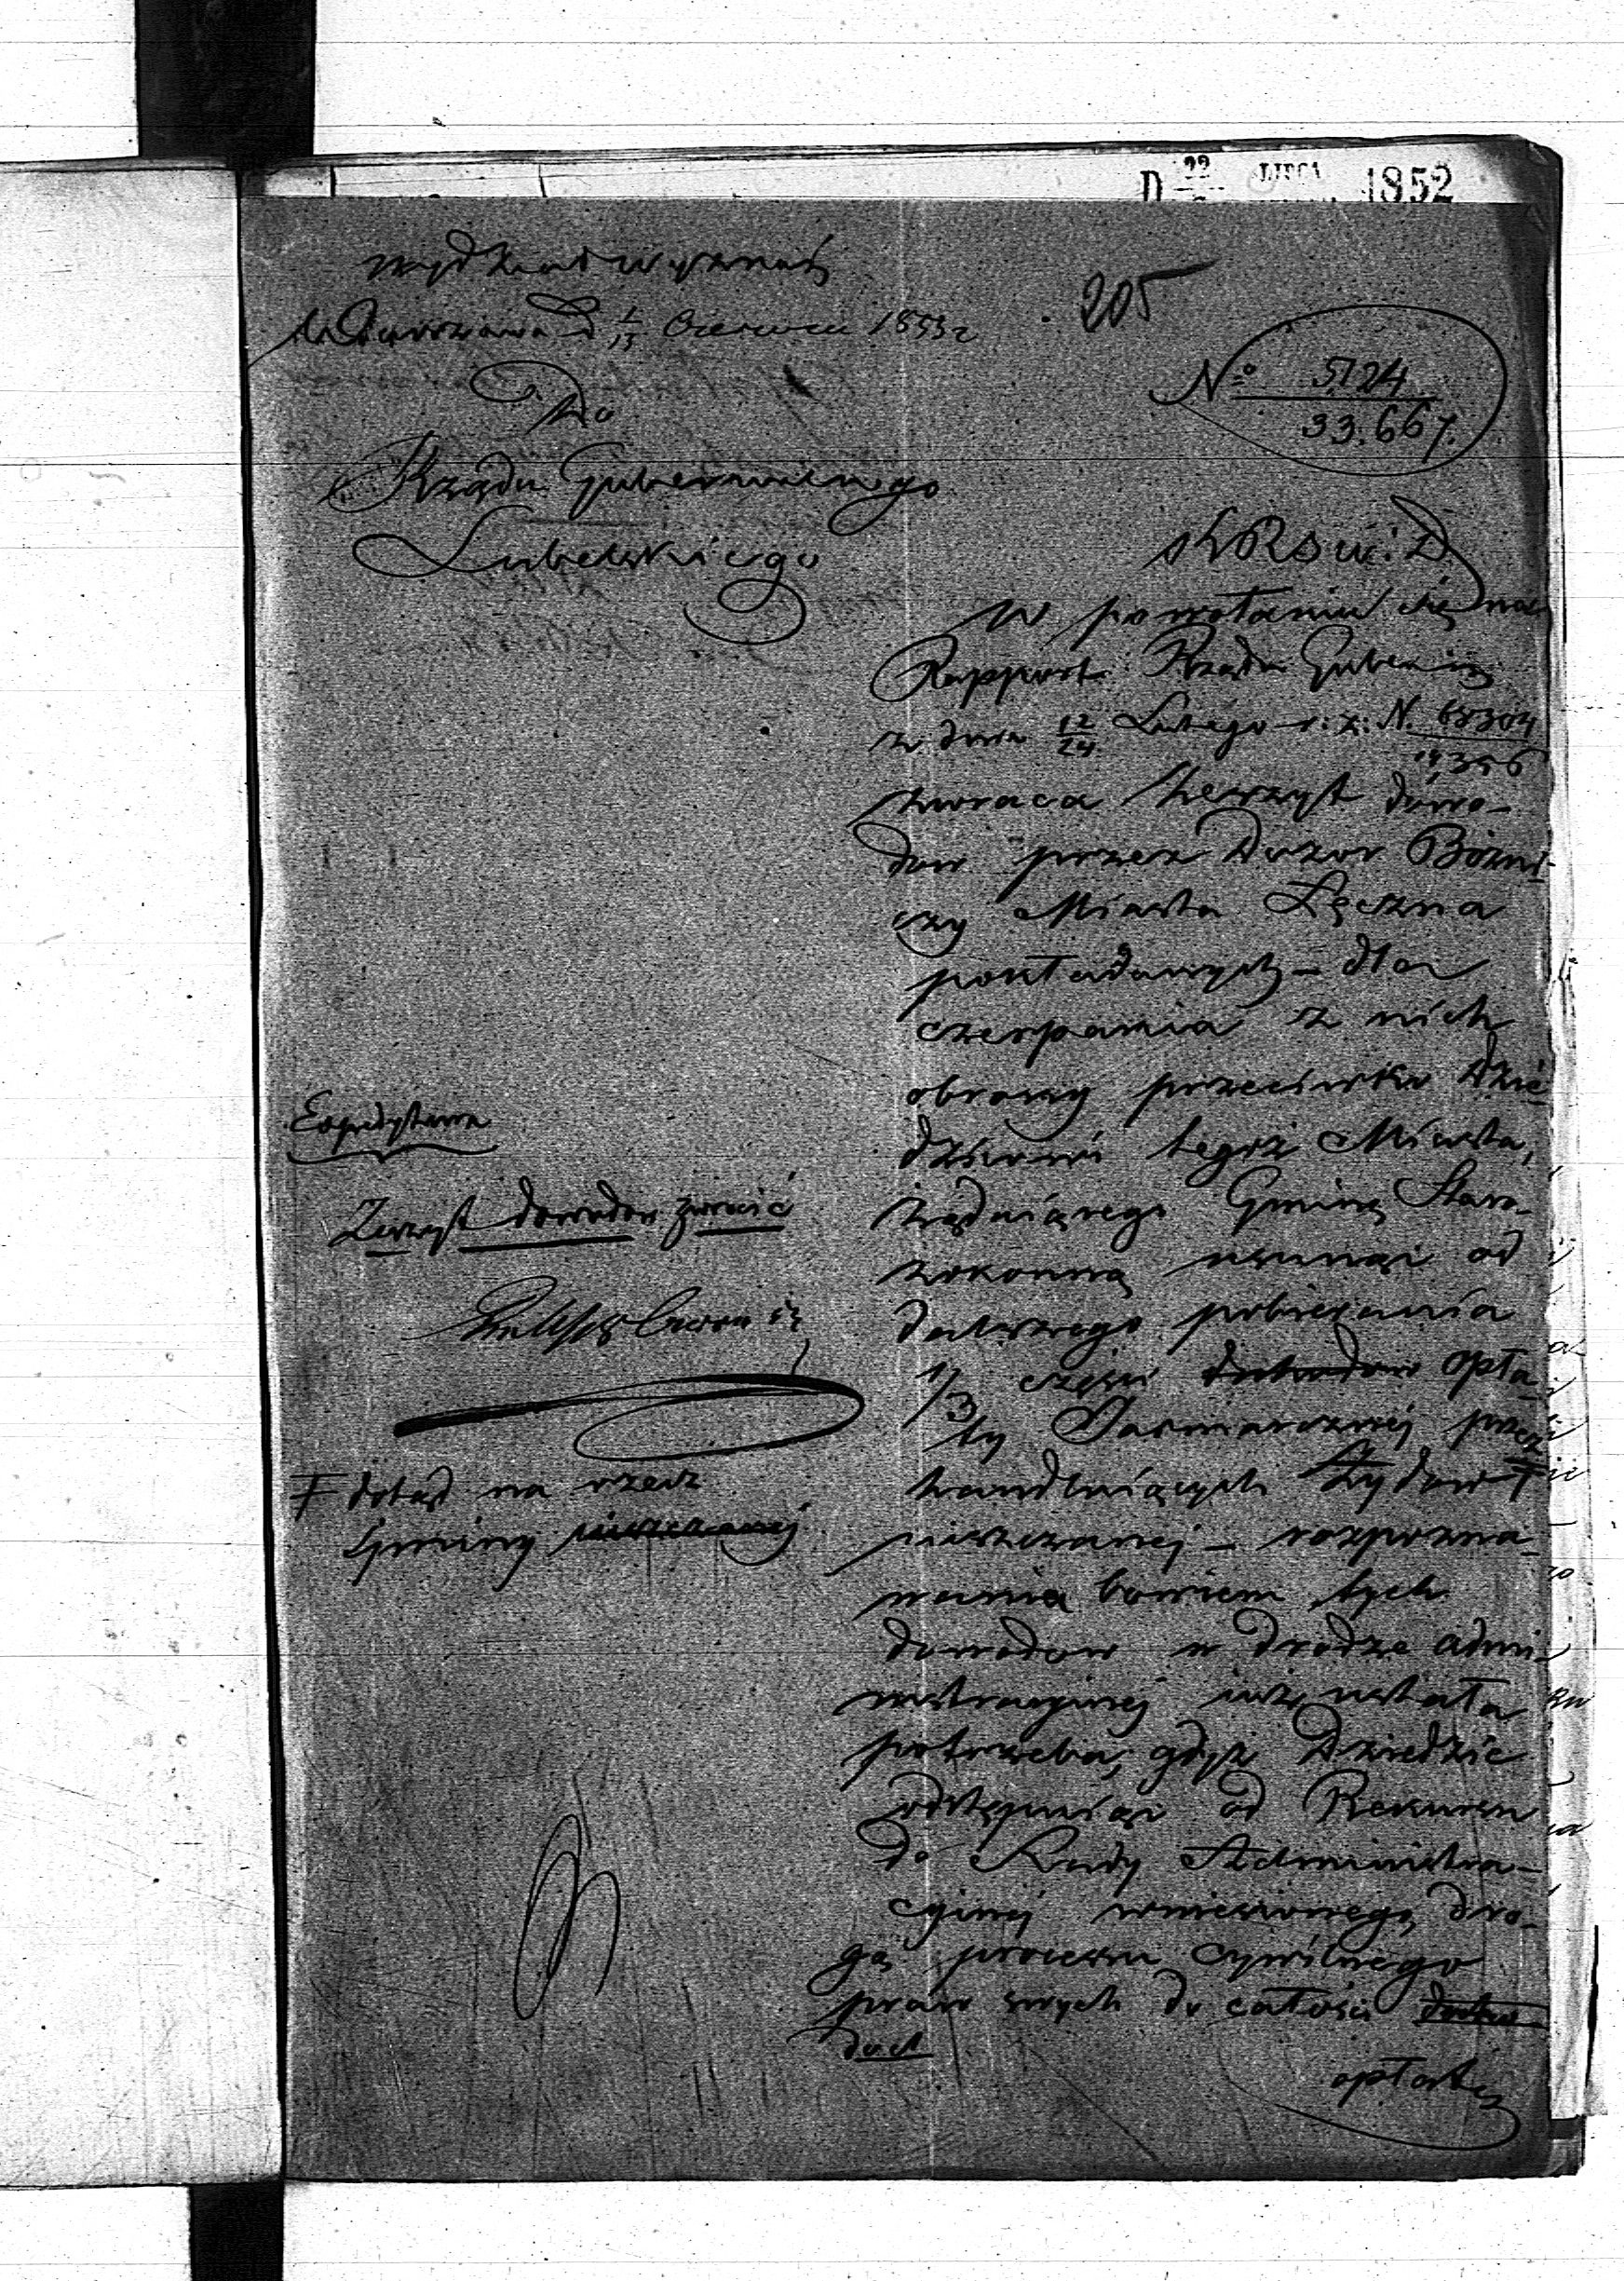 D 22 LIPCA 1852
Wydział Wyznań
205
w Warszawie d 1/13 Czerwca 1853 r
Nº 5124
33.667.
Do
Rządu Gubernialnego
Lubelskiego
KRSW i D
W powołaniu się na
Rapport Rządu Gubern:
z dnia 12/24 Lutego r: z: N.
zwraca Zeszyt dowo-
dow przez Dozor Bożni-
czy Miasta Łęczna
poskładanych – dla
czerpania z nich
obrony przeciwko Dzie-
dzicowi tegoż Miasta,
żądaiącego Gminę Staro-
zakonną usunąć od
dalszego pobierania
1/3 części dochodow opła-
ty Jarmarcznej przez
handluiących Żydow Ŧ
uiszczanej – rozpozna-
wania bowiem tych
dowodow w drodze admi-
nistracyjnej iuż ustała
potrzeba, gdyż Dziedzic
odstąpiwszy od Rekursu
do Rady Administra-
cyjnej wniesionego, dro-
gą processu cywilnego
praw swych do całości docho
dach
opłaty
Expedytura
Zeszyt dowodow zwrócić
Ŧ dotąd na rzecz
Gminy uiszczanej